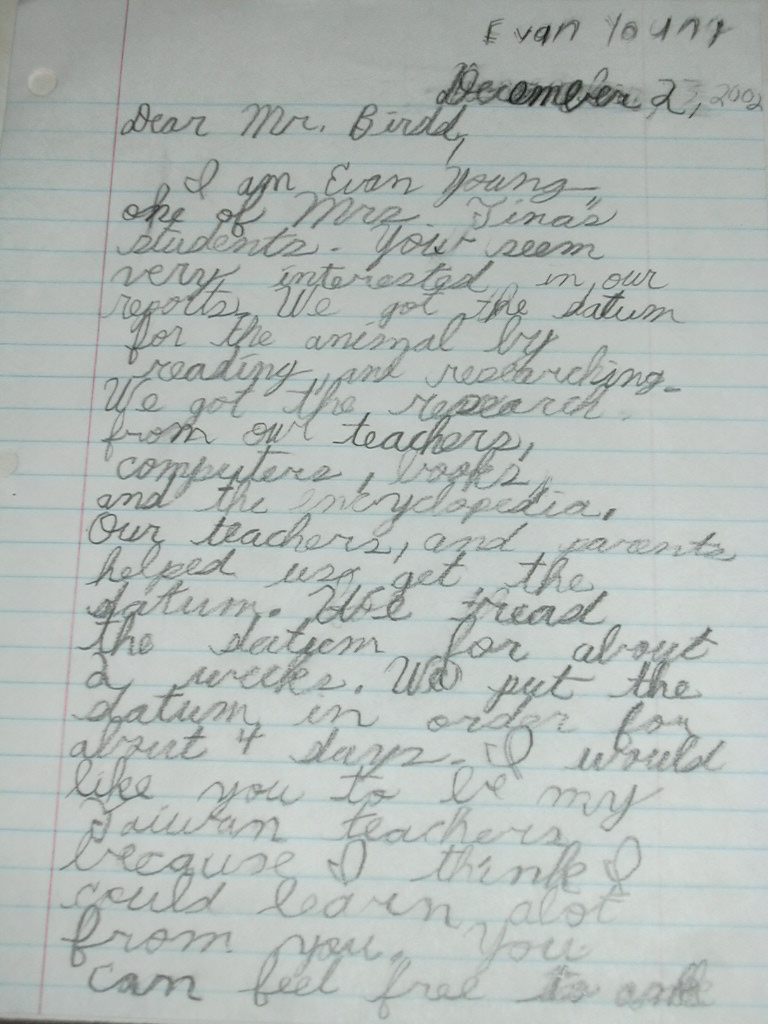 Evan Young
December 2, 2002
Dear Mr. Birdd,
I am Evan Young
one of Mrs. Tina's
students. Your seem
very interested in our
reports. We got the datum
for the animal by
reading and researching.
We got the research
from our teachers,
computers, books,
and the encyclopedia.
Our teachers, and parents
helped us get the
datum. We read
the datum for about
2 weeks. We put the
datum in order for
about 4 days. I would
like you to be my
Taiwan teachers
because I think I
could learn alot
from you. You
can feel free to ask